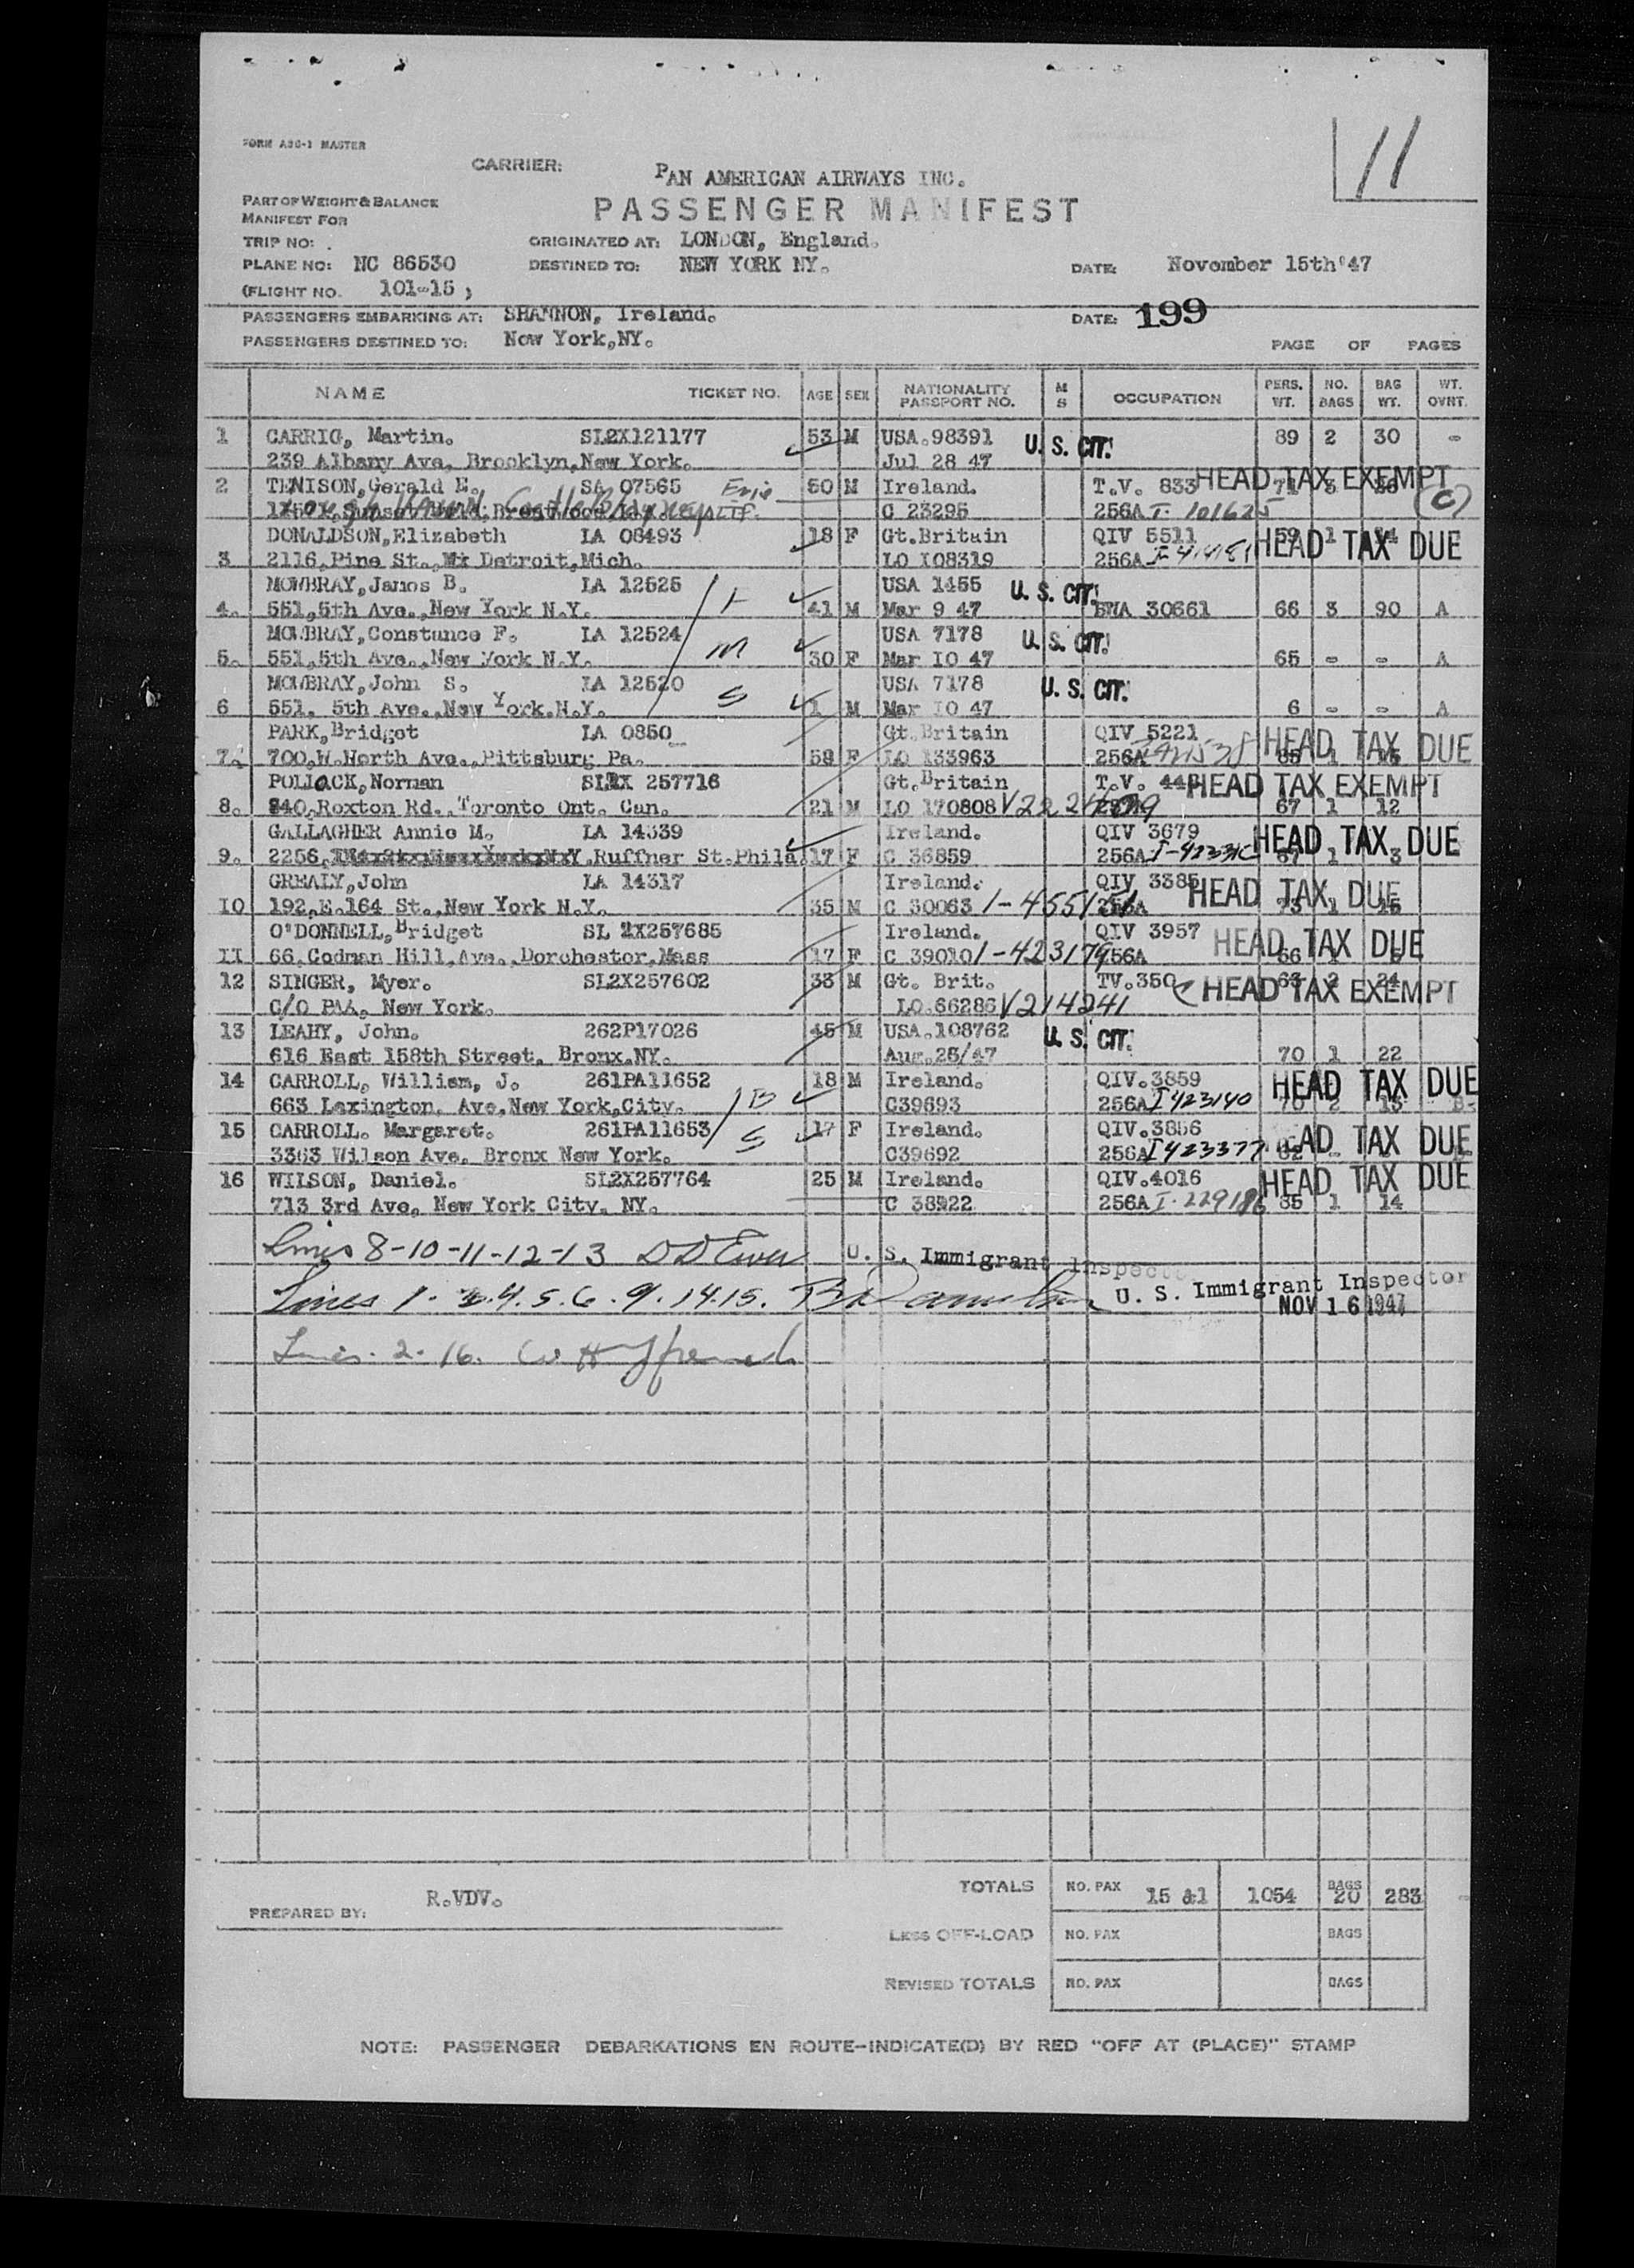 11
FORM ASC-1 MASTER
CARRIER: PAN AMERICAN AIRWAYS INC.
PART OF WEIGHT & BALANCE
MANIFEST FOR
PASSENGER MANIFEST
TRIP NO: . ORIGINATED AT: LONDON, England.
PLANE NO: NC 86530 DESTINED TO: NEW YORK NY. DATE: November 15th'47
(FLIGHT NO. 101-15 )
PASSENGERS EMBARKING AT: SHANNON, Ireland. DATE: 199
PASSENGERS DESTINED TO: New York,NY. PAGE OF PAGES
NAME TICKET NO. AGE SEX NATIONALITY PASSPORT NO. M S OCCUPATION PERS. WT. NO. BAGS BAG WT. WT. OVNT.
1 CARRIG, Martin. SL2X121177 53 M USA.98391 U. S. CIT. 89 2 30 -
239 Albany Ave, Brooklyn,New York. Jul 28 47
2 TENISON,Gerald E. SA 07565 50 M Ireland. T.V. 833 HEAD TAX EXEMPT 71 3
C 23295 256A I-101625 (C)
DONALDSON,Elizabeth LA 08493 18 F Gt.Britain QIV 5511 59 1
3 2116,Pine St., Detroit,Mich. LO I08319 256A HEAD TAX DUE
MOWBRAY,James B. LA 12525 USA 1455 U. S. CIT.
4. 551,5th Ave.,New York N.Y. H 41 M Mar 9 47 BWA 30661 66 3 90 A
MOWBRAY,Constance F. LA 12524 USA 7178 U. S. CIT.
5. 551,5th Ave.,New York N.Y. M 30 F Mar IO 47 65 - - A
MOWBRAY,John S. LA 12520 USA 7178 U. S. CIT.
6 551, 5th Ave.,New York.N.Y. S 1 M Mar IO 47 6 - - A
PARK,Bridget LA 0850 Gt.Britain QIV 5221 HEAD TAX DUE
7. 700,W.North Ave.,Pittsburg Pa. 58 F LO 133963 256A 85 1
POLLOCK,Norman SL2X 257716 Gt.Britain T.V. HEAD TAX EXEMPT
8. 840,Roxton Rd.,Toronto Ont. Can. 21 M LO 170808 67 1 12
GALLAGHER Annie M. LA 14339 Ireland. QIV 3679 HEAD TAX DUE
9. 2256, Ruffner St.Phila. 17 F C 36859 256A 67 1 3
GREALY,John LA 14317 Ireland. QIV 3385 HEAD TAX DUE
IO 192,E.164 St.,New York N.Y. 35 M C 30063 256A 1
O'DONNELL,Bridget SL 2X257685 Ireland. QIV 3957 HEAD TAX DUE
II 66,Codman Hill,Ave.,Dorchester,Mass 17 F C 39010 1-423179 256A 66
12 SINGER, Myer. SL2X257602 33 M Gt. Brit. TV.350 HEAD TAX EXEMPT 63 2 24
C/O PAA, New York. LO.66286 V214241
13 LEAHY, John. 262P17026 45 M USA.108762 U. S. CIT.
616 East 158th Street, Bronx.NY. Aug.25/47 70 1 22
14 CARROLL, William, J. 261PA11652 18 M Ireland. QIV.3859 HEAD TAX DUE
663 Lexington, Ave,New York,City. B C39693 256A I423140 70 2 15
15 CARROLL. Margaret. 261PA11653 17 F Ireland. QIV.3856 HEAD TAX DUE
3363 Wilson Ave. Bronx New York. S C39692 256A I423377
16 WILSON, Daniel. SL2X257764 25 M Ireland. QIV.4016 HEAD TAX DUE
713 3rd Ave, New York City. NY. C 38922 256A I-229186 85 1 14
Lines 8-10-11-12-13 U. S. Immigrant Inspector
Lines 1. 3.4.5.6.9.14.15. U. S. Immigrant Inspector
NOV 16 1947
Lines. 2. 16.
TOTALS NO. PAX 15 &1 1054 BAGS 20 283 -
R.VDV.
PREPARED BY:
LESS OFF-LOAD NO. PAX BAGS
REVISED TOTALS NO. PAX BAGS
NOTE: PASSENGER DEBARKATIONS EN ROUTE-INDICATE(D) BY RED "OFF AT (PLACE)" STAMP